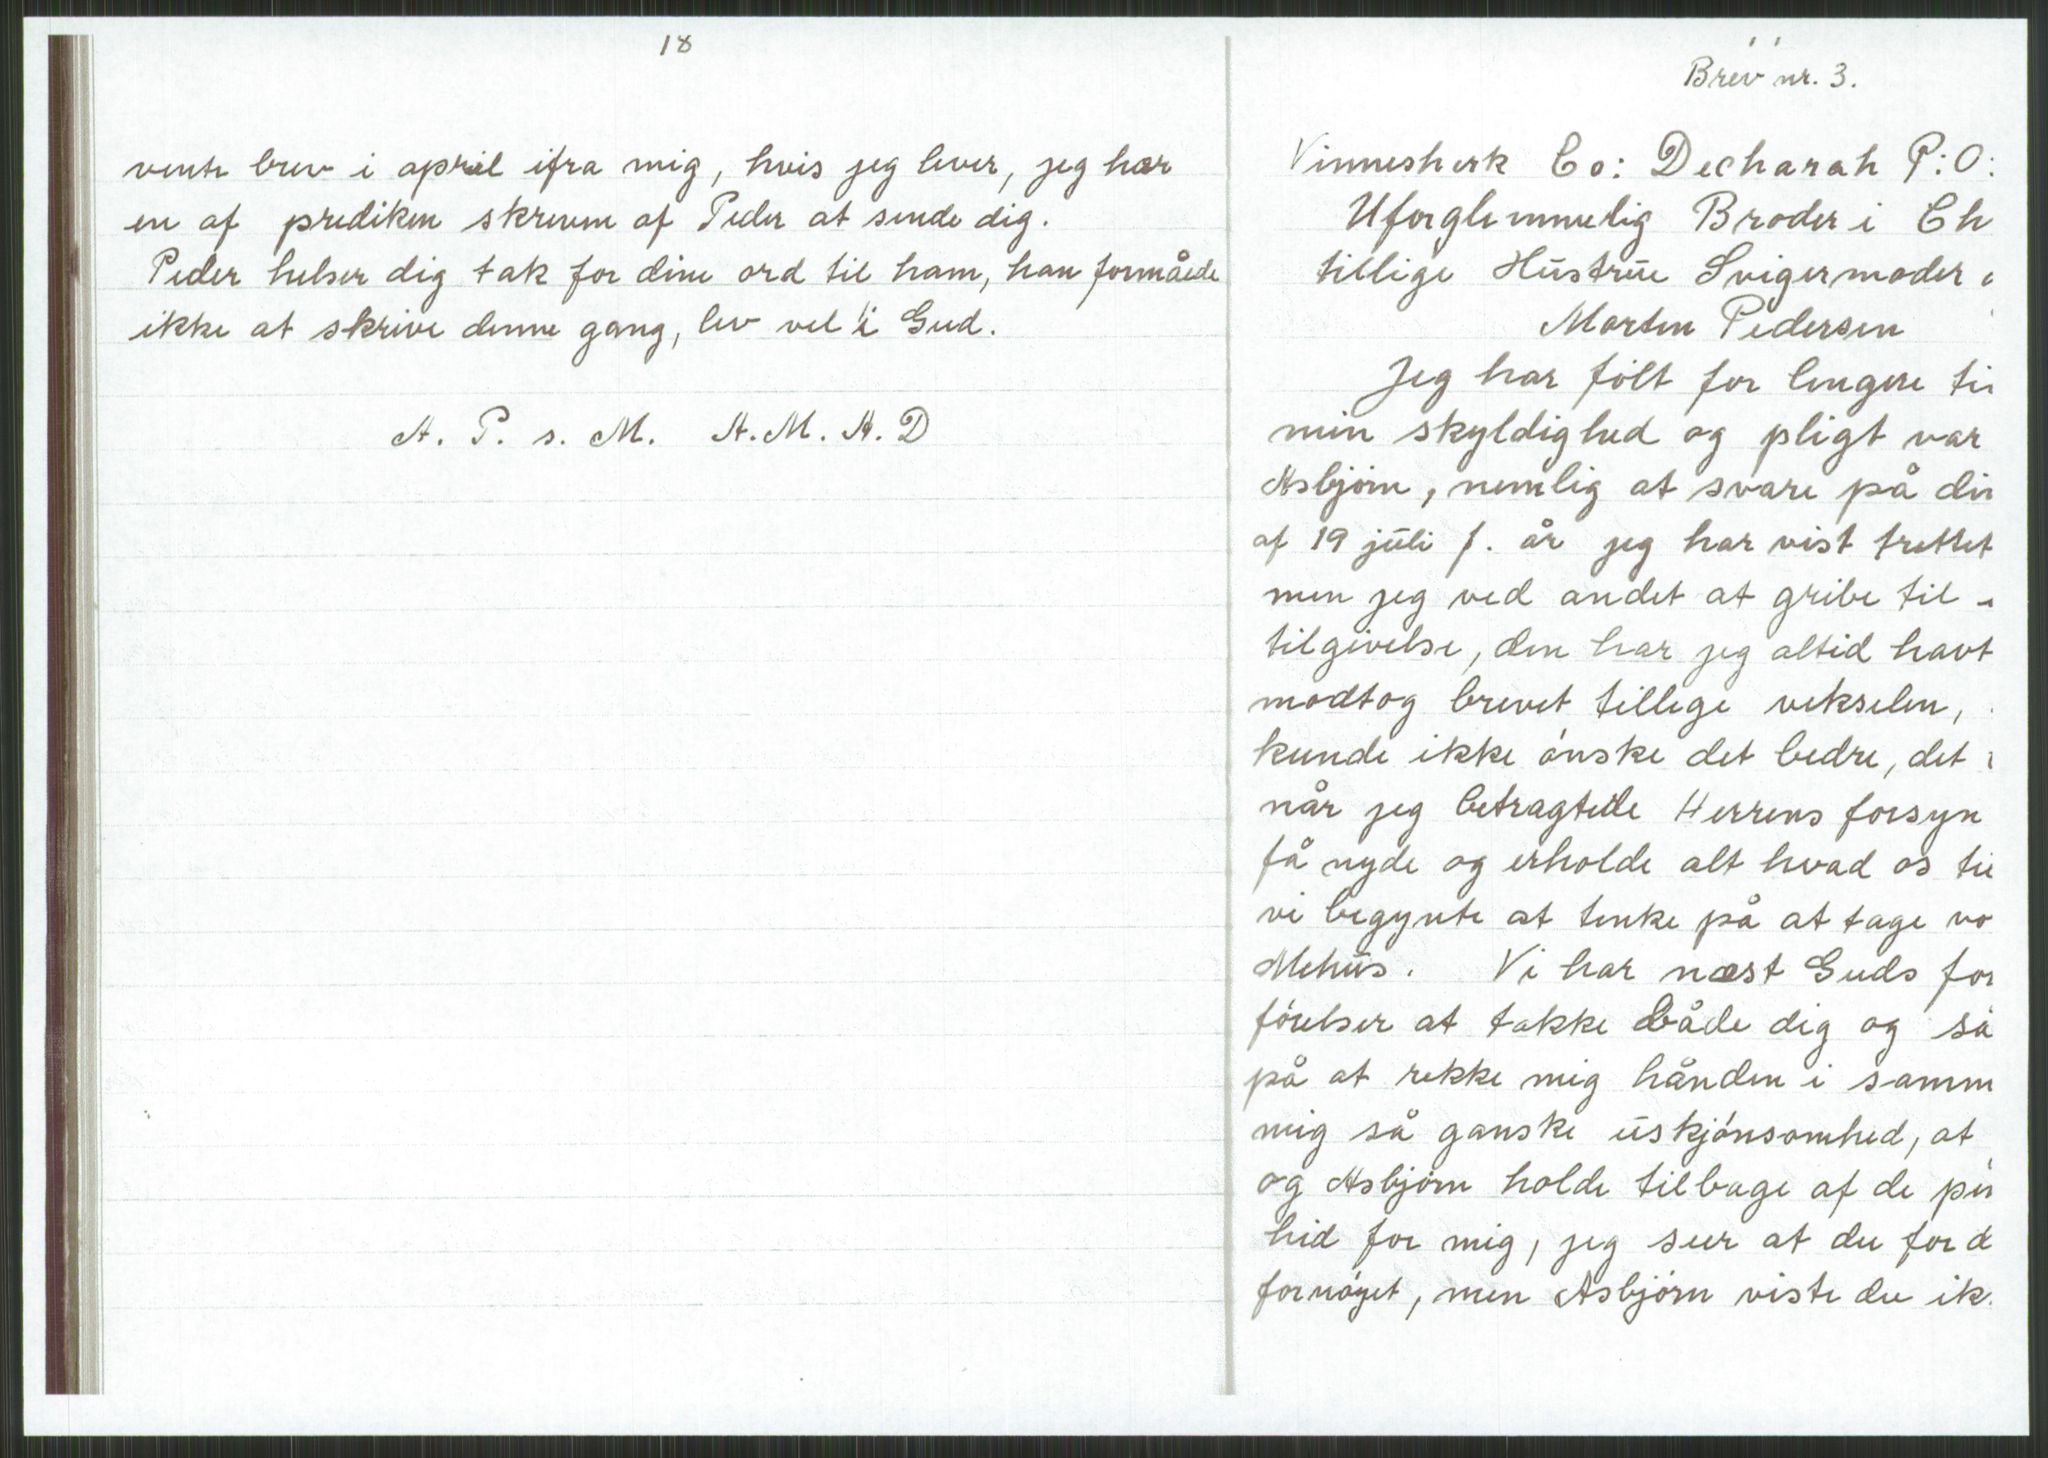 18
vente brev i april ifra mig, hvis jeg lever, jeg har
en af prediken skreven af Peder at sende dig.
Peder helser dig tak for dine ord til ham, han formåede
ikke at skrive denne gang, lev vel i Gud.
A. P. s. M. A. M. H. D
Brev nr. 3.
Vinnesherk Co: Decharah P:O:
Uforglemmelig Broder i Ch
tillige Hustrue Svigermoder
Morten Pedersen
Jeg har følt for lengere ti
min skyldighed og pligt var
Asbjørn, nemlig at svare på din
af 19 juli f. år jeg har vist trettet
men jeg ved andet at gribe til
tilgivelse, den har jeg altid havt
modtog brevet tillege vekselen,
kunde ikke ønske det bedre, det
når jeg betragtede Herrens forsyn
få nyde og erholde alt hvad os til
vi begynte at tenke på at tage vo
Mehus. Vi har næst Guds for
førelser at takke både dig og så
på at rekke mig hånden i samm
mig så ganske uskjønsomhed, at
og Asbjørn holde tilbage af de pen
hid for mig, jeg seer at du for d
fornøyet, men Asbjørn viste du ik